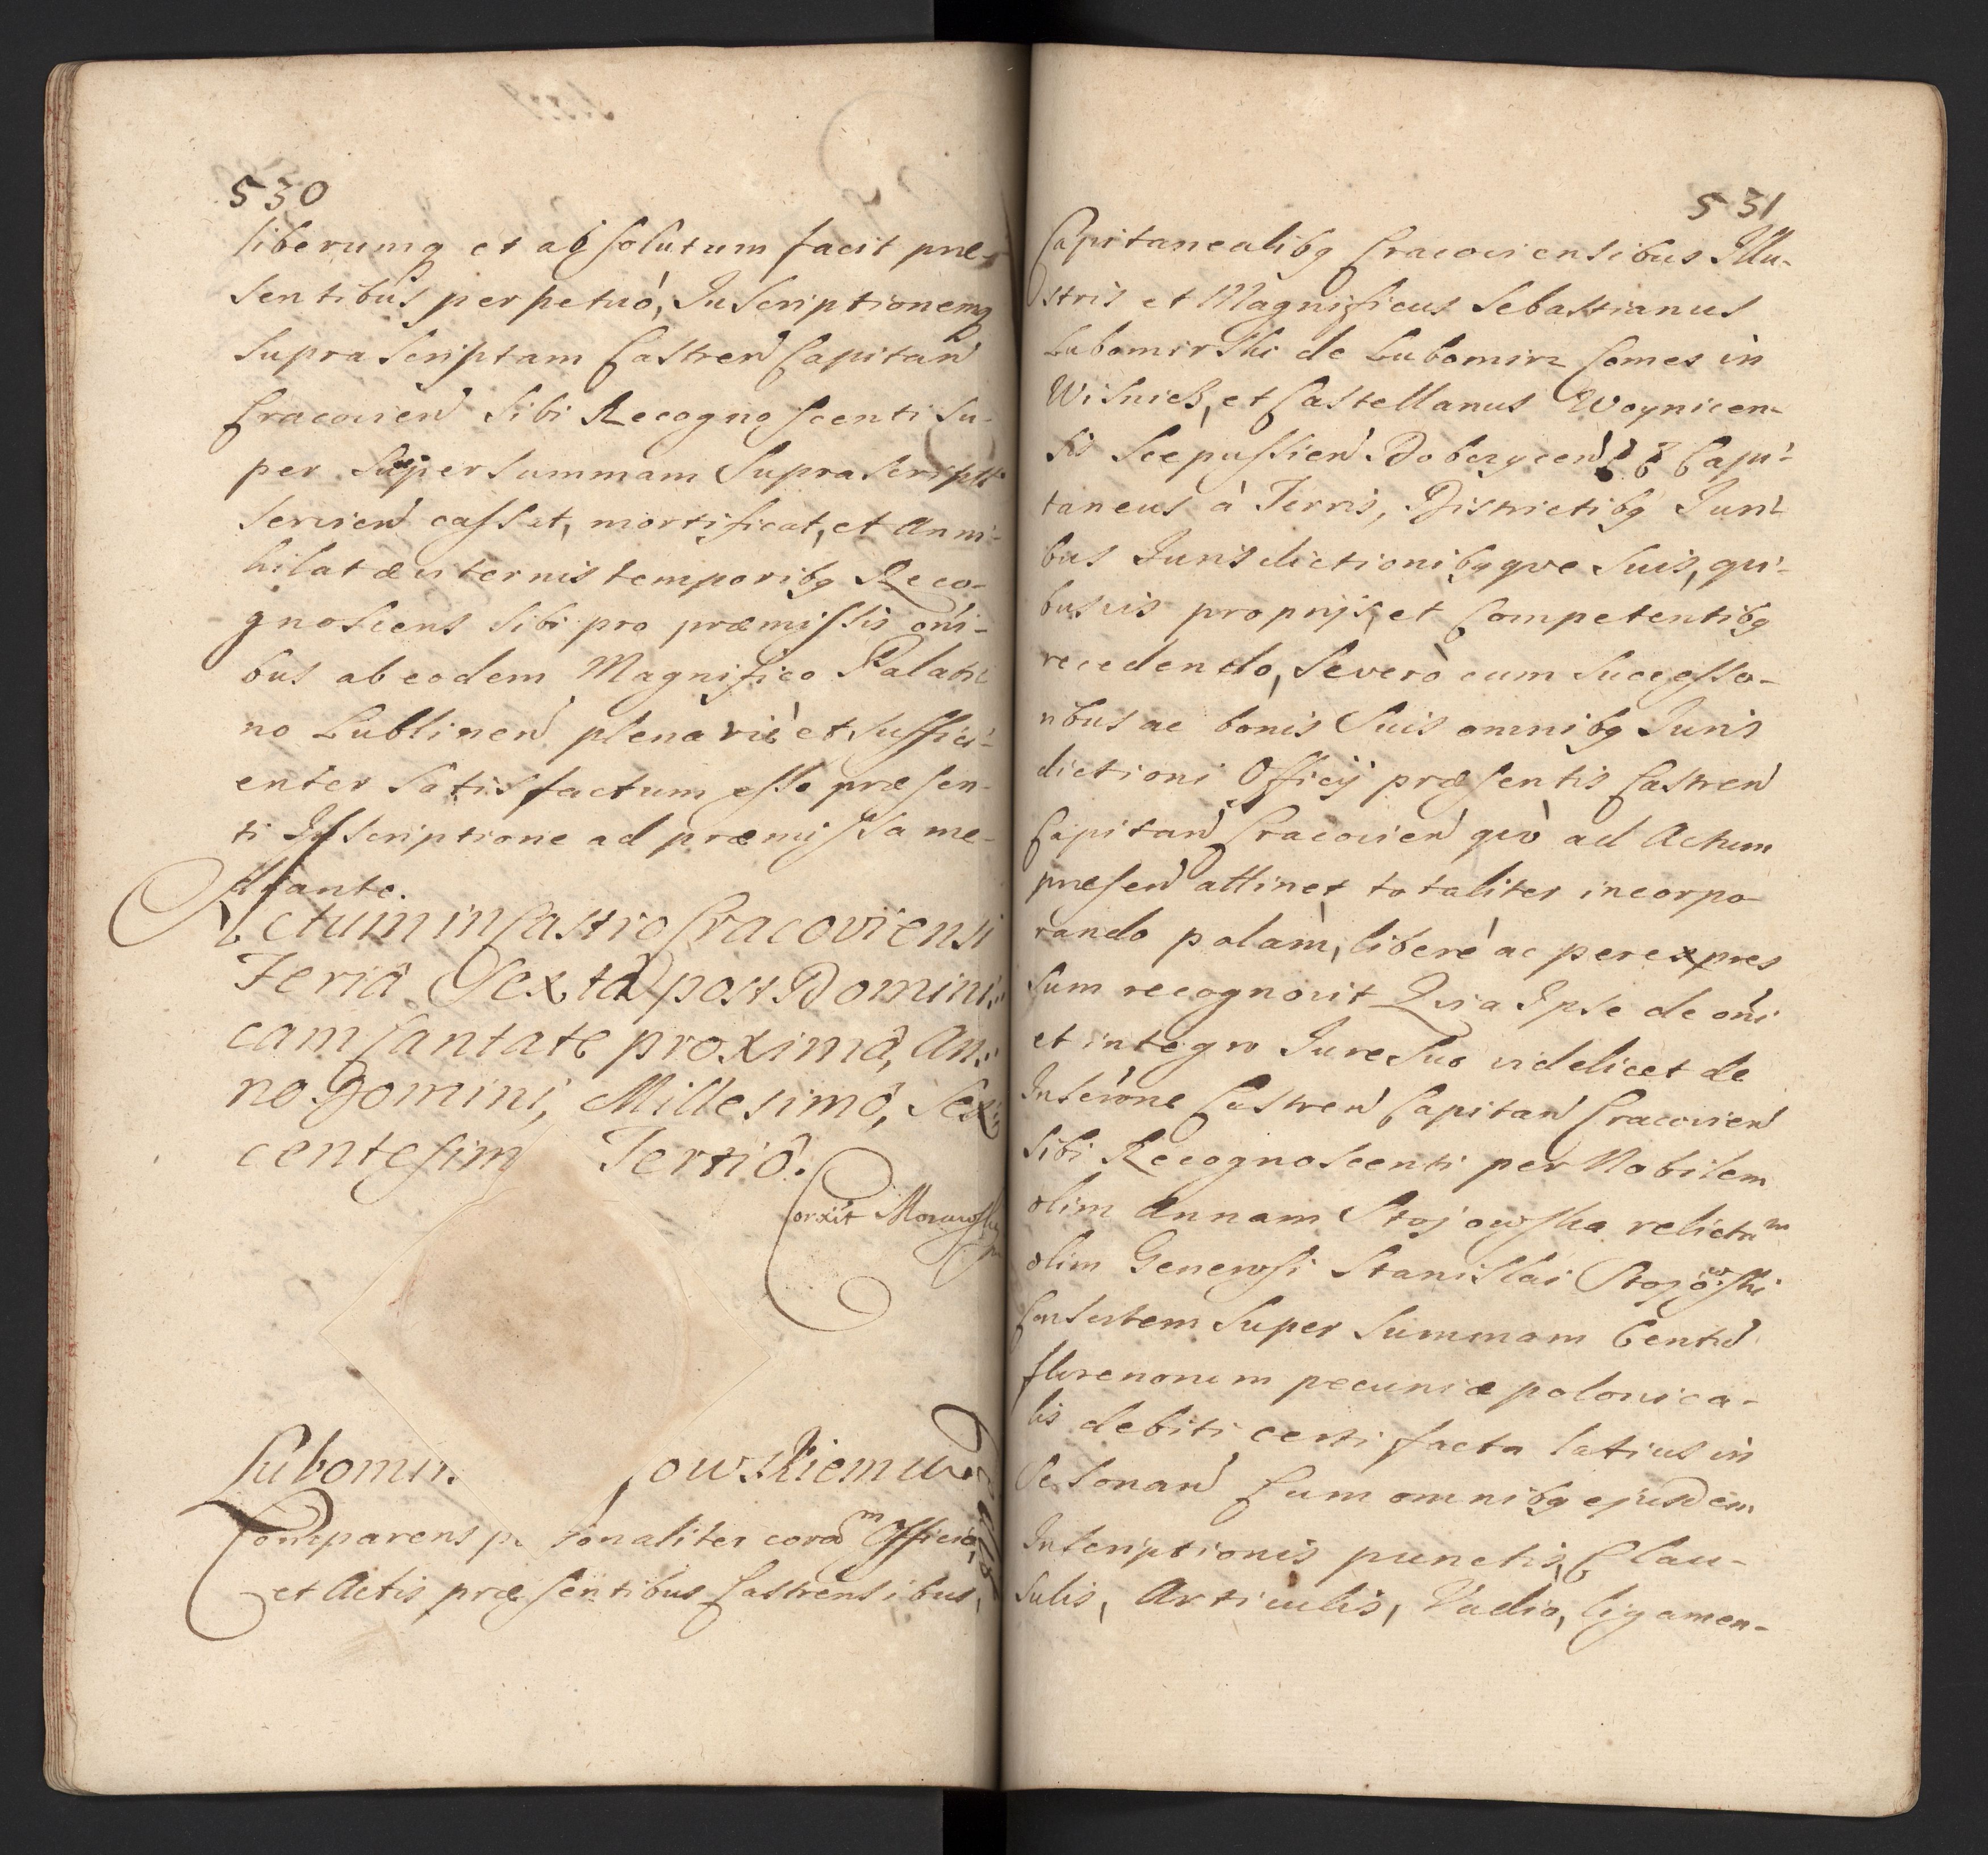 530
liberumq et absolutum facit præ-
sentibus perpetuò, Inscriptionemq
supra scriptam Castren Capitan
Cracovien sibi Recognoscenti su-
per super summam supra script
servien cassat, mortificat, et Anni-
hilat æviternis temporibq Reco-
gnoscens sibi pro præmissis oni-
bus ab eodem Magnifico Palati
no Lublinen plenariè et suffici-
enter satisfactum esse præsen-
ti Inscriptione ad præmissa me-
diante.
Actum in Castro Cracoviensi
Feriâ Sextâ post Domini-
cam Cantate proximâ, An-
no Domini, Millesimô, Sex-
centesim Tertiô.
Corxit Morawsky
mp
Lubomir. owskiemu
Comparens p sonaliter corã m Officio,
et Actis præsentibus Castrensibus,
531
Capitanealibq Cracoviensibus Illu-
stris et Magnificus Sebastianus
Lubomirski de Lubomirz Comes in
Wisnicz, et Castellanus Woynicen-
sis Scepussien Dobczycen Capi-
taneus à Terris, Districtibq Juri-
bus Jurisdictionibqqve suis, qui-
busvis proprijs, et Competentibq
recedendo, se verò cum successo-
ribus ac bonis suis omnibq Juris
dictioni Officij præsentis Castren
Capitan Cracovien qvò ad Actum
præsen attinet totaliter incorpo-
rando palàm, liberè ac per expres
sum recognovit Qvia Ipse de oni
et integro Jure suo videlicet de
Inscrone Castren Capitan Cracovien
sibi Recognoscenti per Nobilem
olim Annam Stojowska relictam
olim Generosi Stanislai Stojowski
Consortem super summam Centu
florenorum pecuniæ polonica-
lis debiti certi facta latius in
se sonan Cum omnibq ejusdem
Inscriptionis punctis, Clau-
sulis, Articulis, Vadio, ligamen-